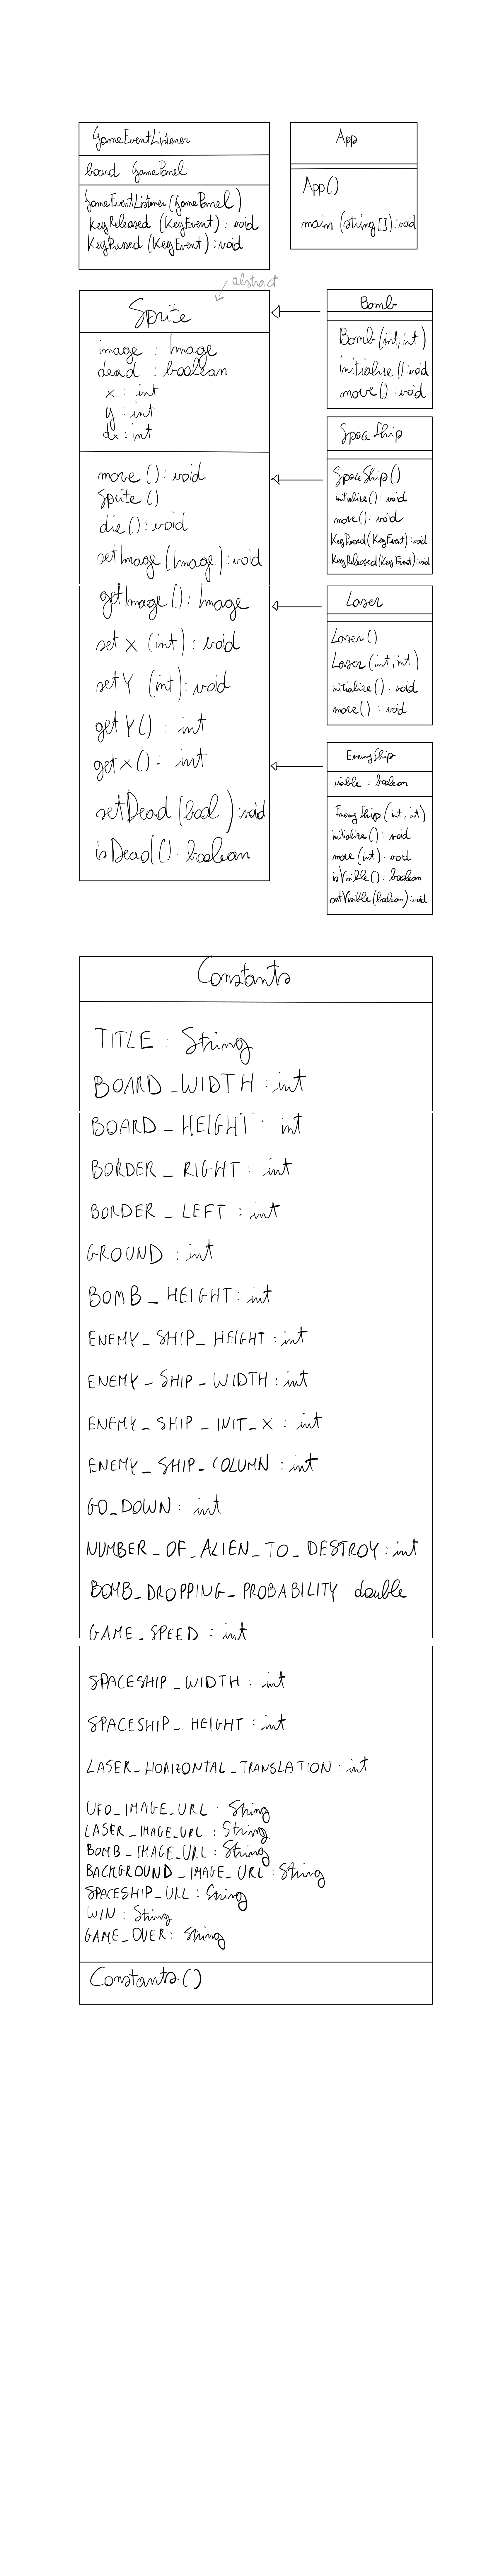 GameEventListener
board : GamePanel
GameEventListener (GamePanel)
KeyReleased (KeyEvent) : void
KeyPressed (KeyEvent) : void
App
App()
main (string []) : void
abstract
Sprite
image : Image
dead : boolean
x : int
y : int
dx : int
move () : void
Sprite ()
die () : void
setImage (Image) : void
getImage () : Image
set X (int) : void
set Y (int) : void
get Y() : int
get x() : int
setDead (bool ) : void
isDead () : boolean
Bomb
Bomb (int, int)
initialize () : void
move () : void
Space Ship
SpaceShip ()
initialize () : void
move () : void
KeyPressed (KeyEvent) : void
KeyReleased (KeyEvent) : void
Laser
Laser ()
Laser (int, int)
initialize () : void
move () : void
EnemyShip
visible : boolean
EnemyShip (int, int)
initialize () : void
move (int) : void
isVisible () : boolean
setVisible (boolean) : void
Constants
TITLE : String
BOARD_WIDTH : int
BOARD_HEIGHT : int
BORDER_RIGHT : int
BORDER_LEFT : int
GROUND : int
BOMB_HEIGHT : int
ENEMY_SHIP_HEIGHT : int
ENEMY_SHIP_WIDTH : int
ENEMY_SHIP_INIT_X : int
ENEMY_SHIP_COLUMN : int
GO_DOWN : int
NUMBER_OF_ALIEN_TO_DESTROY : int
BOMB_DROPPING_PROBABILITY : double
GAME_SPEED : int
SPACESHIP_WIDTH : int
SPACESHIP_HEIGHT : int
LASER_HORIZONTAL_TRANSLATION : int
UFO_IMAGE_URL : String
LASER_IMAGE_URL : String
BOMB_IMAGE_URL : String
BACKGROUND_IMAGE_URL : String
SPACESHIP_URL : String
WIN : String
GAME_OVER : String
Constants ()